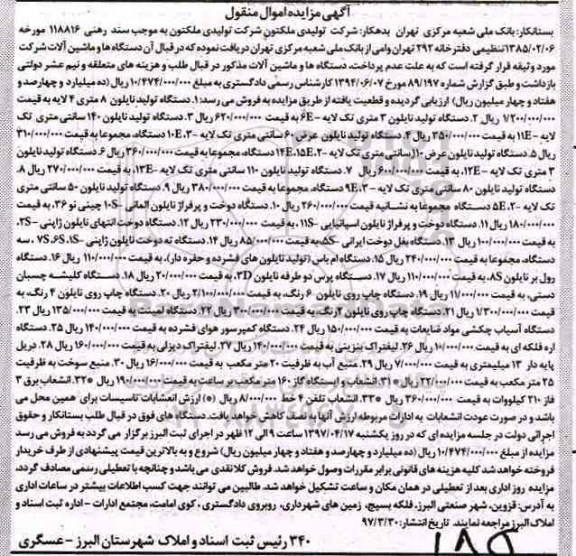 آگهی مزایده اموال منقول
بستانکار: بانک ملی شعبه مرکزی تهران بدهکار: شرکت تولیدی ملکتون شرکت تولیدی ملکتون به موجب سند رهنی ۱۱۸۸۱۶ مورخه
۱۳۸۵/۰۲/۰۶ تنظیمی دفترخانه ۲۹۲ تهران وامی از بانک ملی شعبه مرکزی تهران دریافت نموده که در قبال آن دستگاه ها و ماشین آلات شرکت
مورد وثیقه قرار گرفته است که به علت عدم پرداخت، دستگاه ها و ماشین آلات مذکور در قبال طلب و هزینه های متعلقه و نیم عشر دولتی
بازداشت و طبق گزارش شماره ۸۹/۱۹۷ مورخ ۱۳۹۴/۰۶/۰۷ کارشناس رسمی دادگستری به مبلغ ۱۰/۴۷۴/۰۰۰/۰۰۰ ریال (ده میلیارد و چهارصد و
هفتاد و چهار میلیون ریال) ارزیابی گردیده و قطعیت یافته از طریق مزایده به فروش می رسد: ۱. دستگاه تولید نایلون ۸ متری ۴ لایه به قیمت
۷/۲۰۰/۰۰۰/۰۰۰ ریال ۲. دستگاه تولید نایلون ۳ متری تک لایه -۶E به قیمت ۶۲۰/۰۰۰/۰۰۰ ریال ۳. دستگاه تولید نایلون ۱۴۰ سانتی متری تک
لایه -۱۱E به قیمت ۳۵۰/۰۰۰/۰۰۰ ریال ۴. دستگاه تولید نایلون عرض ۶۰ سانتی متری تک لایه -۱۰E،۳ مجموعا به قیمت ۳۱۰/۰۰۰/۰۰۰
ریال ۵. دستگاه تولید نایلون عرض ۱۱۰ سانتی متری تک لایه -۱۴E،۱۵E،۲ دستگاه، مجموعا به قیمت ۳۶۰/۰۰۰/۰۰۰ ریال ۶. دستگاه تولید نایلون
۳ متری تک لایه -۱۲E، به قیمت ۶۰۰/۰۰۰/۰۰۰ ریال ۷. دستگاه تولید نایلون ۱۱۰ سانتی متری تک لایه -۱۳E، به قیمت ۲۷۰/۰۰۰/۰۰۰ ریال ۸.
دستگاه تولید نایلون ۸۰ سانتی متری تک لایه -۹E،۳ دستگاه، مجموعا به قیمت ۳۸۰/۰۰۰/۰۰۰ ریال ۹. دستگاه تولید نایلون ۵۰ سانتی متری
تک لایه -۵E،۲ دستگاه مجموعا به نشانیه قیمت ۲۶۰/۰۰۰/۰۰۰ ریال ۱۰. دستگاه دوخت و پرفراژ نایلون آلمانی -۱۰S چینی نو ۳۶، به قیمت
۱۸۰/۰۰۰/۰۰۰ ریال ۱۱. دستگاه دوخت و پرفراژ نایلون اسپانیایی -۱۱S به قیمت ۲۳۰/۰۰۰/۰۰۰ ریال ۱۲. دستگاه دوخت انتهای نایلون ژاپنی -۲S،
به قیمت ۱۰۰/۰۰۰/۰۰۰ ریال ۱۳. دستگاه بغل دوخت ایرانی -۵S، به قیمت ۸۵/۰۰۰/۰۰۰ ریال ۱۴. دستگاه ته دوخت نایلون ژاپنی -۷S،۶S،۱S، سه
دستگاه، مجموعا به قیمت ۲۴۰/۰۰۰/۰۰۰ ریال ۱۵. دستگاه ام باس (تولید نایلون های فشرده و حفره دار)، به قیمت ۱۱۰/۰۰۰/۰۰۰ ریال ۱۶. دستگاه
رول بر نایلون ۸S، به قیمت ۱۱۰/۰۰۰/۰۰۰ ریال ۱۷. دستگاه پرس دو طرفه نایلون ۳D، به قیمت ۲۰/۰۰۰/۰۰۰ ریال ۱۸. دستگاه کلیشه چسبان
دستی، به قیمت ۱۱/۰۰۰/۰۰۰ ریال ۱۹. دستگاه چاپ روی نایلون ۶ رنگ، به قیمت ۲/۱۰۰/۰۰۰/۰۰۰ ریال ۲۰. دستگاه چاپ روی نایلون ۴ رنگ، به
قیمت ۱/۳۰۰/۰۰۰/۰۰۰ ریال ۲۱. دستگاه چاپ روی نایلون ۲ رنگ، به قیمت ۳۰۰/۰۰۰/۰۰۰ ریال ۲۲. دستگاه لمینت به قیمت ۱۳۵/۰۰۰/۰۰۰ ریال ۲۳.
دستگاه آسیاب چکشی مواد ضایعات به قیمت ۱۵۰/۰۰۰/۰۰۰ ریال ۲۴. دستگاه کمپرسور هوای فشرده به قیمت ۱۴۰/۰۰۰/۰۰۰ ریال ۲۵. دستگاه
اره فلکه ای به قیمت ۱۰/۰۰۰/۰۰۰ ریال ۲۶. لیفتراک بنزینی به قیمت ۱۴۰/۰۰۰/۰۰۰ ریال ۲۷. لیفتراک دیزلی به قیمت ۱۶۰/۰۰۰/۰۰۰ ریال ۲۸. دریل
پایه دار ۱۳ میلیمتری به قیمت ۷/۰۰۰/۰۰۰ ریال ۲۹. منبع آب به ظرفیت ۲۰ متر مکعب به قیمت ۱۶/۰۰۰/۰۰۰ ریال ۳۰. منبع سوخت به ظرفیت
۲۵ متر مکعب به قیمت ۲۲/۰۰۰/۰۰۰ ریال *۳۱. انشعاب و ایستگاه گاز ۱۶۰ متر مکعب بر ساعت به قیمت ۱۹۰/۰۰۰/۰۰۰ ریال *۳۲. انشعاب برق ۳
فاز ۲۱۰ کیلووات به قیمت ۳۶۰/۰۰۰/۰۰۰ ریال *۳۳. انشعاب تلفن ۴ خط ۸/۰۰۰/۰۰۰ ریال (*) ارزش انعشابات تاسیسات برای همین محل می
باشد و در صورت عودت انشعابات به ادارات مربوطه ارزش آنها به نصف کاهش خواهد یافت. دستگاه های فوق در قبال طلب بستانکار و حقوق
اجرائی دولت در جلسه مزایده ای که در روز یکشنبه ۱۳۹۷/۰۴/۱۷ ساعت ۹ الی ۱۲ ظهر در اجرای ثبت البرز برگزار می گردد به فروش می رسد
مزایده از مبلغ ۱۰/۴۷۴/۰۰۰/۰۰۰ ریال (ده میلیارد و چهارصد و هفتاد و چهار میلیون ریال) شروع و به بالاترین قیمت پیشنهادی از طرف خریدار
فروخته خواهد شد کلیه هزینه های قانونی برابر مقررات وصول خواهد شد. فروش کلا نقدی می باشد و چنانچه با تعطیلی رسمی مصادف گردد،
مزایده روز اداری بعد از تعطیلی در همان مکان و ساعت تشکیل خواهد شد. طالبین می توانند جهت کسب اطلاعات بیشتر در ساعات اداری
به آدرس: قزوین، شهر صنعتی البرز، فلکه بسیج، زمین های شهرداری، روبروی دادگستری، کوی امامت، مجتمع ادارات - اداره ثبت اسناد و
املاک البرز مراجعه نمایند. تاریخ انتشار: ۹۷/۳/۳۰
۳۴۰ رئیس ثبت اسناد و املاک شهرستان البرز - عسگری